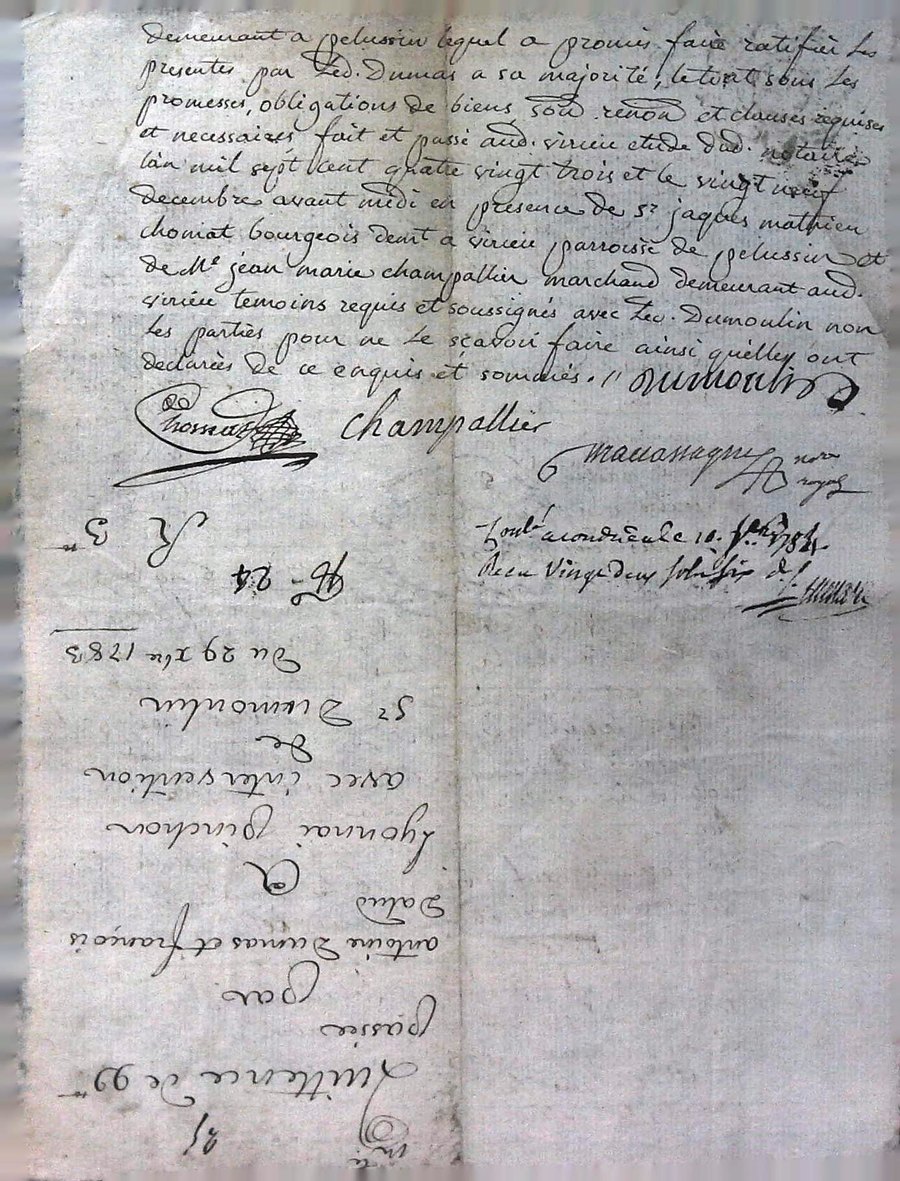 demeurant a pelussin lequel a promis faire ratifier les
presentes par Led. Dumas a sa majorité, le tout sous les
promesses, obligations de biens, soūm. renoñ et clauses requises
et necessaires, fait et passé aud. virieu etude dud. notaire
lan mil sept cent quatre vingt trois et le vingt neuf
decembre avant midi en presence de Sr jaques mathieu
chomat bourgeois demt a virieu parroisse de pelussin et
de Me jean marie champallier marchand demeurant aud.
virieu temoins requis et soussignés avec Led. Dumoulin non
les parties pour ne le scavoir faire ainsi quelles ont
declarées de ce enquis et sommées. // Dumoulin
Chomat champallier
nore
royal
a condrieu le 10.
Recu vingt deux sols six d.
R 3tt
24
Du 29 xbre 1783
Sr Dumoulin
de
avec intervention
Lyonnai pinchon
A
Dalud
antoine Dumas et françois
par
passée
Quittence de 99tt